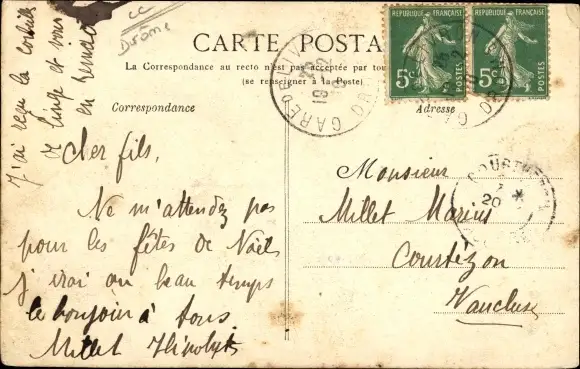 J'ai reçu la corbeille
de linge et vous
en remercie
Drôme
CARTE POSTA
La Correspondance au recto n'est pas acceptée par tou
(se renseigner à la Poste)
Correspondance
Adresse
RÉPUBLIQUE FRANÇAISE
5c
POSTES
RÉPUBLIQUE FRANÇAISE
5c
POSTES
GARE
COURTHEZON
20
Cher fils,
Ne m'attendez pas
pour les fêtes de Noël
j'irai au beau temps
le bonjour à tous
Millet Hipolyte
Monsieur
Millet Marius
Courtezon
Vaucluse